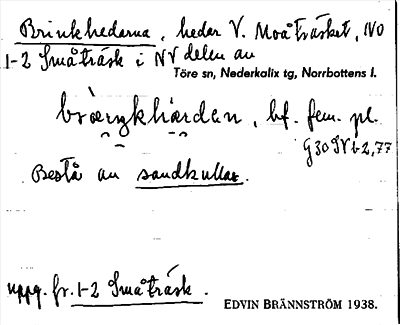 Brinkhedarna, hedar V. Moåträsket, NO
1-2 Småträsk i NV delen av
Töre sn, Nederkalix tg, Norrbottens l.
bf. fem. pl.
G30 SV b-2,77
Bestå av sandkullar.
uppg. fr. 1-2 Småträsk.
EDVIN BRÄNNSTRÖM 1938.